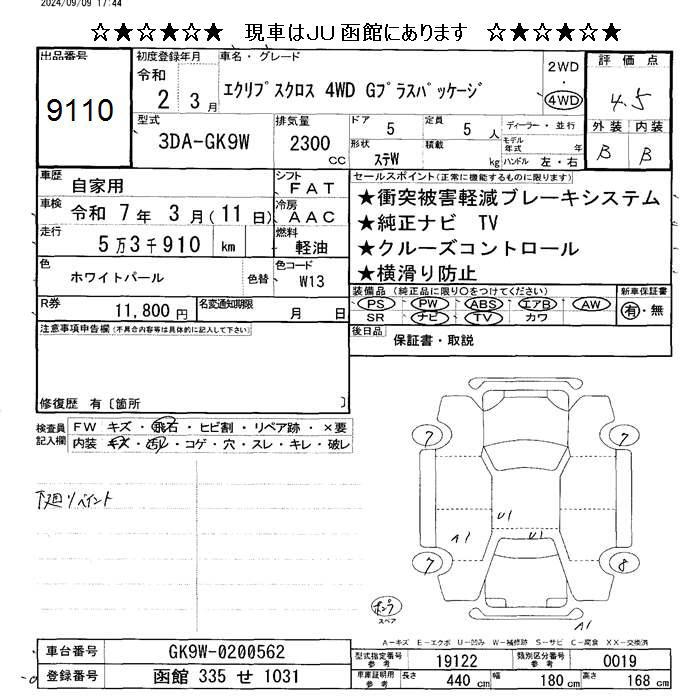 2024/09/09 17:44
☆★☆★☆★ 現車はJU函館にあります ☆★☆★☆★
出品番号
9110
初度登録年月
令和
2 3月
車名・グレード
エクリプスクロス 4WD Gプラスパッケージ
2WD
・
4WD
評価点
4.5
外装 内装
B B
型式
3DA-GK9W
排気量
2300
CC
ドア 5
定員 5 人
形状 ステW
積載 kg
ディーラー・並行
モデル年式 年
ハンドル 左・右
車歴
自家用
シフト
FAT
車検
令和 7年 3月(11日)
冷房
AAC
走行
5万3千910 km
燃料
軽油
色
ホワイトパール
色替
色コード
W13
R券
11,800円
名変通知期限
月 日
セールスポイント(正常に機能するものに限ります)
★衝突被害軽減ブレーキシステム
★純正ナビ TV
★クルーズコントロール
★横滑り防止
装備品 (純正品に限り○をつけてください)
PS PW ABS エアB AW
SR ナビ TV カワ
新車保証書
有・無
後日品
保証書・取説
注意事項申告欄(不具合内容等は具体的に記入して下さい)
修復歴 有〔箇所 〕
検査員
記入欄
FW キズ・飛石・ヒビ割・リペア跡・×要
内装 キズ・汚レ・コゲ・穴・スレ・キレ・破レ
下廻リペイント
7 7
U1
A1 U1
7 8
ポンプ
スペア
A1
A-キズ E-エクボ U-凹み W-補修跡 S-サビ C-腐食 XX-交換済
車台番号
GK9W-0200562
登録番号
函館 335 せ 1031
型式指定番号
参考
19122
類別区分番号
参考
0019
車庫証明用
参考
長さ 440 cm
幅 180 cm
高さ 168 cm